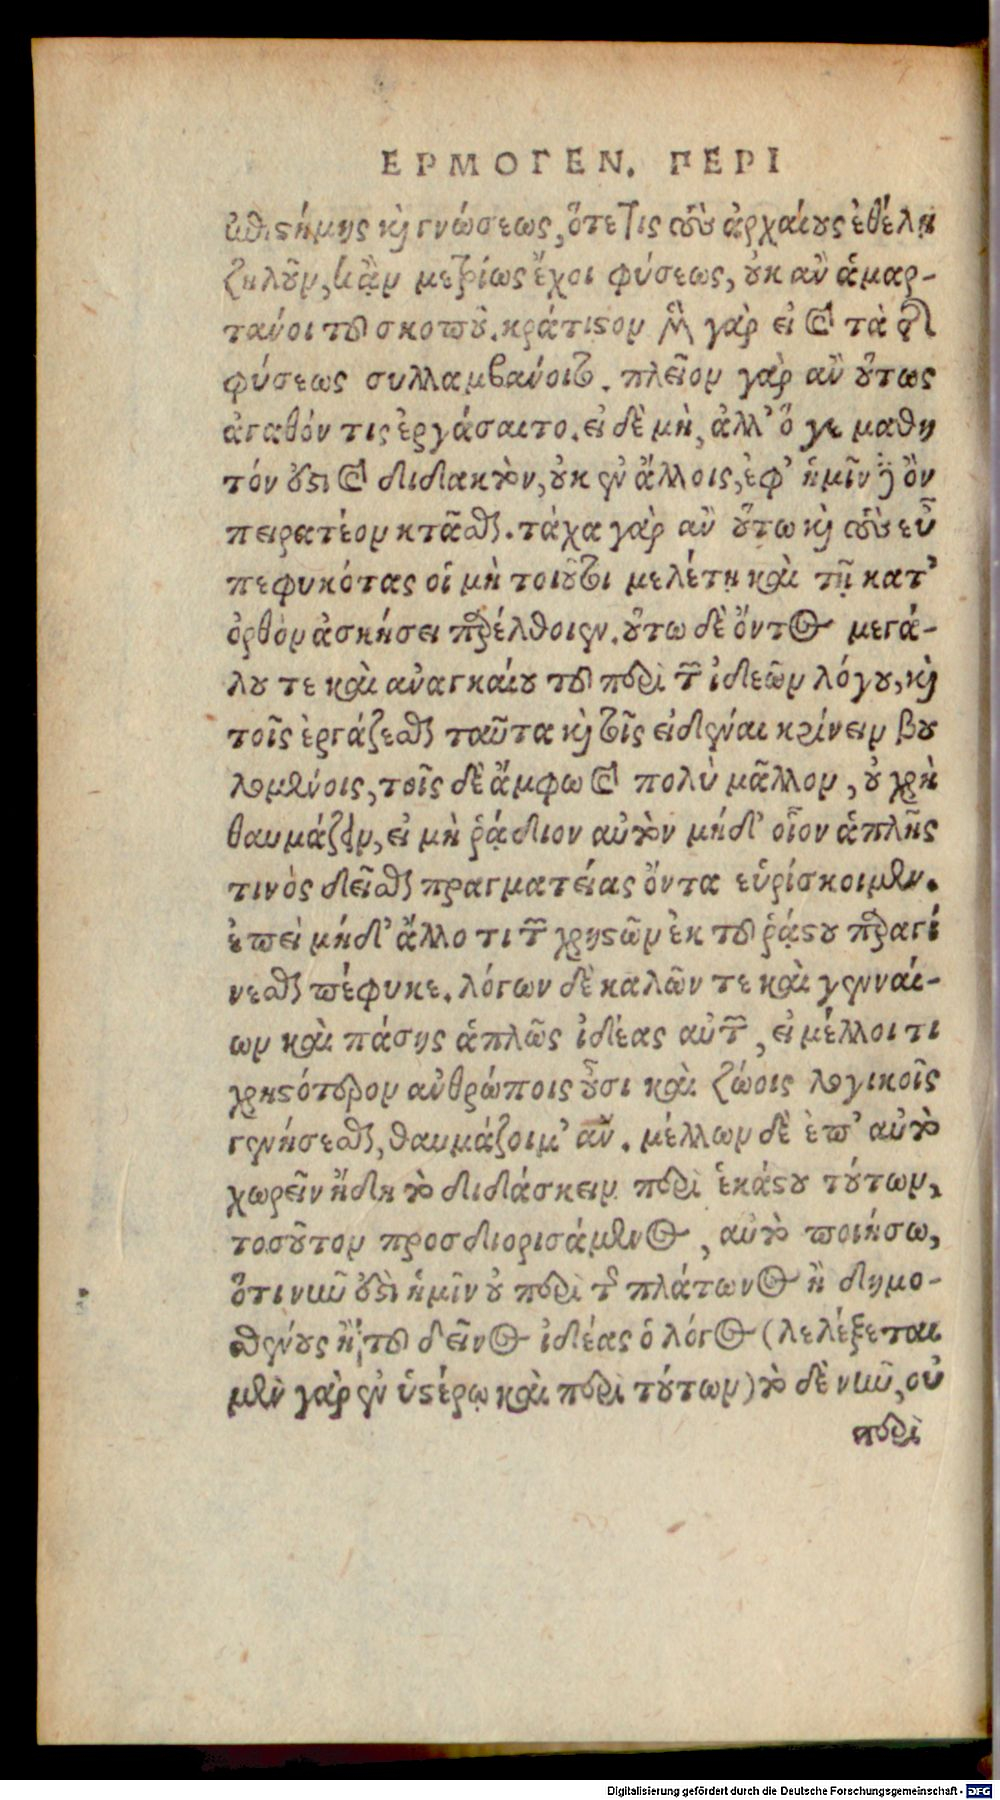 ΕΡΜΟΓΕΝ. ΠΕΡΙ
ἐπιστήμης καὶ γνώσεως, ὅτε τις τοὺς ἀρχαίους ἐθέλῃ
ζηλοῦν, κἂν μετρίως ἔχοι φύσεως, οὐκ ἂν ἁμαρ-
τάνοι τοῦ σκοποῦ. κράτιστον μὲν γὰρ εἰ καὶ τὰ τῆς
φύσεως συλλαμβάνοιτο. πλεῖον γὰρ ἂν οὕτως
ἀγαθόν τις ἐργάσαιτο. εἰ δὲ μὴ, ἀλλ' ὅ γε μαθη
τόν ἐστι καὶ διδακτὸν, οὐκ ἐν ἄλλοις, ἐφ' ἡμῖν δὲ ὂν
πειρατέον κτᾶσθαι. τάχα γὰρ ἂν οὕτω καὶ τοὺς εὖ
πεφυκότας οἱ μὴ τοιοῦτοι μελέτῃ καὶ τῇ κατ'
ὀρθὸν ἀσκήσει παρέλθοιεν. οὕτω δὲ ὄντος μεγά-
λου τε καὶ ἀναγκαίου τοῦ περὶ τῶν ἰδεῶν λόγου, καὶ
τοῖς ἐργάζεσθαι ταῦτα καὶ τοῖς εἰδέναι κρίνειν βου
λομένοις, τοῖς δὲ ἄμφω καὶ πολὺ μᾶλλον, οὐ χρὴ
θαυμάζειν, εἰ μὴ ῥᾴδιον αὐτὸν μήδ' οἷον ἁπλῆς
τινὸς δεῖσθαι πραγματείας ὄντα εὑρίσκοιμεν.
ἐπεὶ μήδ' ἄλλο τι τῶν χρηστῶν ἐκ τοῦ ῥᾴστου παραγί
νεσθαι πέφυκε. λόγων δὲ καλῶν τε καὶ γενναί-
ων καὶ πάσης ἁπλῶς ἰδέας αὐτῶν, εἰ μέλλοι τι
χρηστότερον ἀνθρώποις οὖσι καὶ ζώοις λογικοῖς
γενήσεσθαι, θαυμάζοιμ' ἄν. μέλλων δὲ ἐπ' αὐτὸ
χωρεῖν ἤδη τὸ διδάσκειν περὶ ἑκάστου τούτων,
τοσοῦτον προσδιορισάμενος, αὐτὸ ποιήσω,
ὅτι νῦν ἐστὶ ἡμῖν οὐ περὶ τῆς πλάτωνος ἢ δημο-
σθένους ἢ τοῦ δεῖνος ἰδέας ὁ λόγος (λελέξεται
μὲν γὰρ ἐν ὑστέρῳ καὶ περὶ τούτων) τὸ δὲ νῦν, οὐ
περὶ
Digitalisierung gefördert durch die Deutsche Forschungsgemeinschaft - DFG